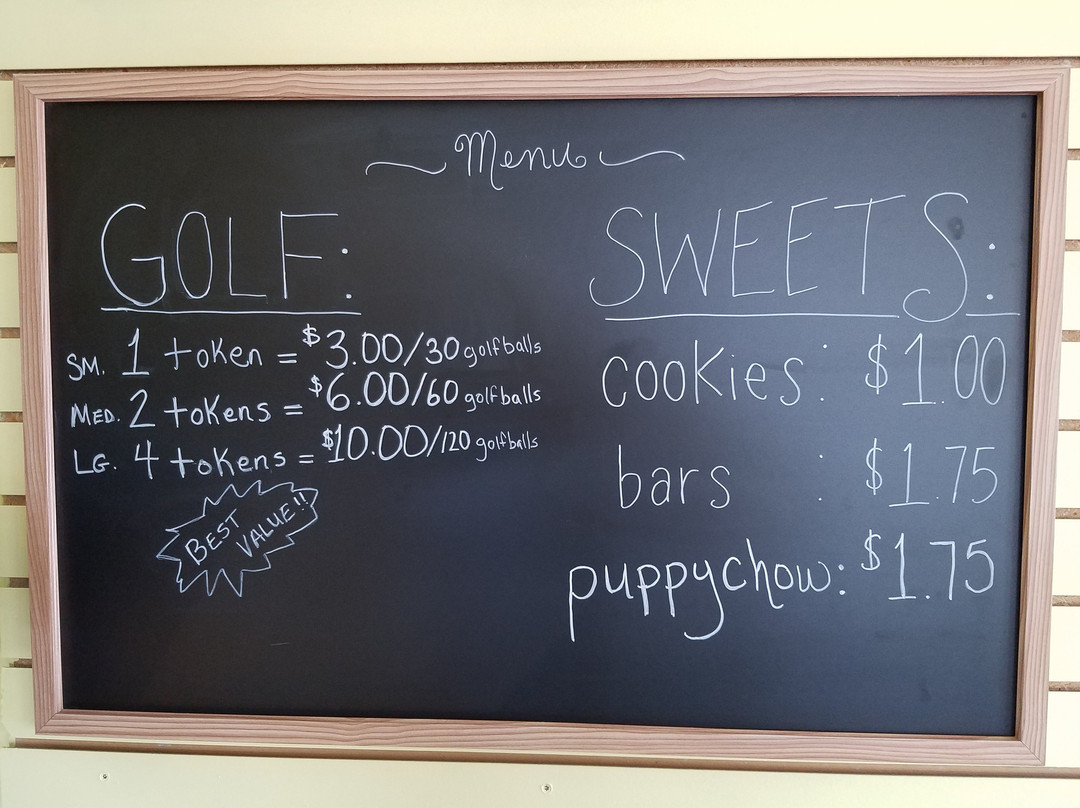 Menu
GOLF:
SM. 1 token = $3.00/30 golfballs
MED. 2 tokens = $6.00/60 golfballs
LG. 4 tokens = $10.00/120 golfballs
BEST
VALUE!!
SWEETS:
cookies: $1.00
bars : $1.75
puppychow: $1.75